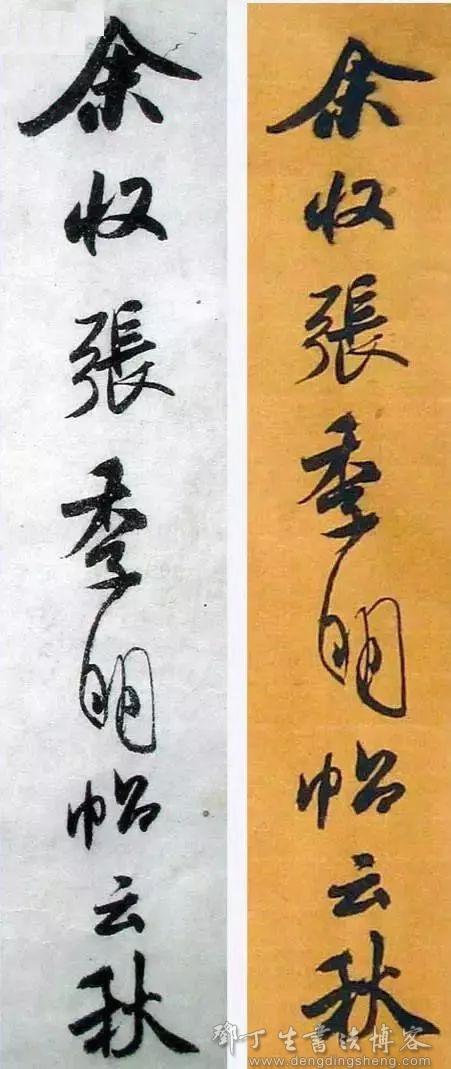 余收張季明帖云秋
余收張季明帖云秋
鄧丁生書法博客
www.dengdingsheng.com